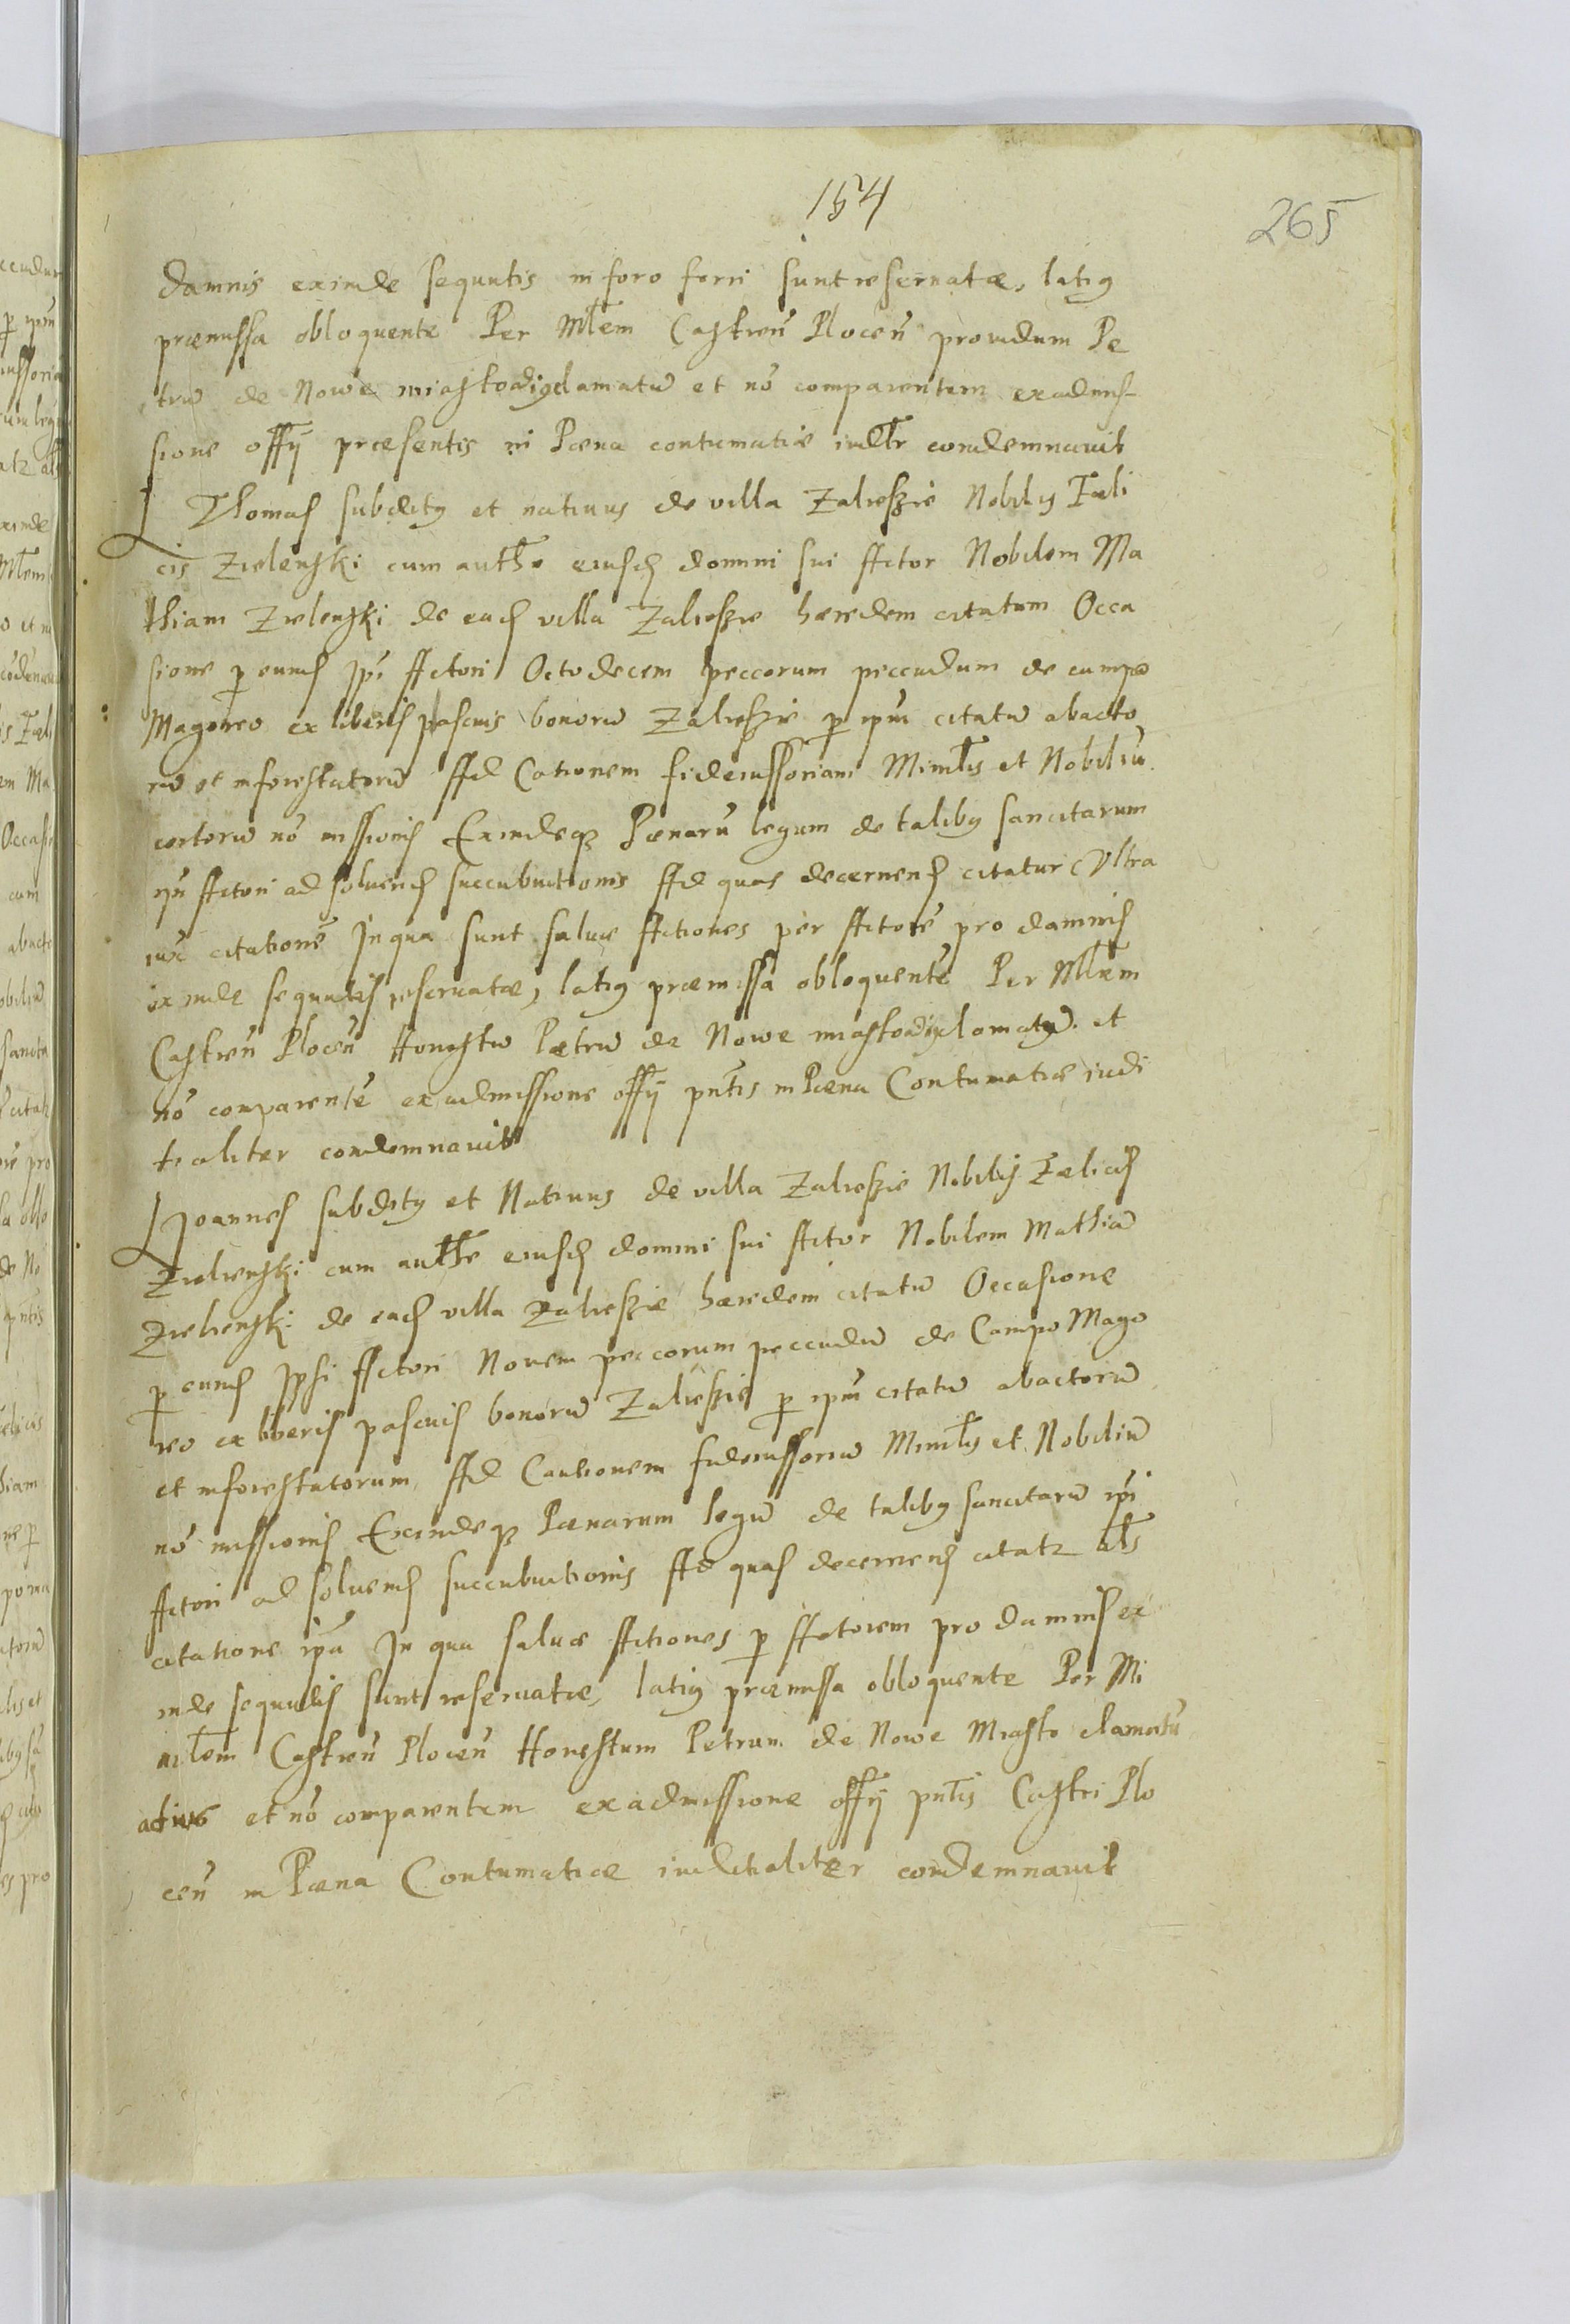 154
265
damnis exinde sequutis in foro fori sunt reservatæ, latiq
præmissa obloquente Per Mlem Castren Plocen providum Pe
trū de Nowe miasto adiq clamatū et nō comparentem ex admis-
sione offÿ præsentis in Pœna contumatiæ iudlr condemnavit
Thomas subditq et nativus de villa Zalieszie Nobilis Fœli
cis Zielenski cum authe eiusd domini sui Actor Nobilem Ma
thiam Zielenski de ead villa Zalieszie hæredem citatum Occa
sione p eund Ipi Actori Octodecem peccorum peccudum de campo
Magoreo ex liberis pascuis bonorū Zalieszie p ipm citatū abacto
rū et inforestatorū Ad Cationem fideiussoriam Mintlis et Nobiliū
certorū nō missionis Exindeq Pœnarū legum de talibq sancitarum
ipi Actori ad solvend succubuitionis Ad quas decernend citatur Ultra
iux citationē In qua sunt salvæ Actiones per Actorē pro damnis
exinde sequutis reservatæ, latiq præmissa obloquente Per Mlem
Castren Plocen Honestū Petrū de Nowe miasto adiq clamatū et
nō comparentē ex admissione offÿ pntis in Pœna Contumatiæ iudi
tialiter condemnavit
Joannes subditq et Nativus de villa Zalieszie Nobilis Fœlicis
Zielienski cum authe eiusd domini sui Actor Nobilem Mathiā
Zielienski de ead villa Zalieszie hæredem citatū Occasione
p eund Ipsi Actori Novem peccorum peccudū de Campo Mago
reo ex liberis pascuis bonorū Zalieszie p ipm citatū abactorū
et inforestatorum Ad Cautionem fideiussoriā Mintlis et Nobiliū
nō missionis Exindeq Pœnarum legū de talibq sancitarū ipi
Actori ad solvend succubuitionis Ad quas decernend citatr als
citatione ipa In qua salvæ Actiones p Actorem pro damnis ex
inde sequutis sunt reservatæ, latiq præmissa obloquente Per Mi
nrlem Castren Plocen Honestum Petrum de Nowe Miasto clamatū
adius et nō comparentem ex admissione offÿ pntis Castri Plo
cen in Pœna Contumatiæ iuditialiter condemnavit